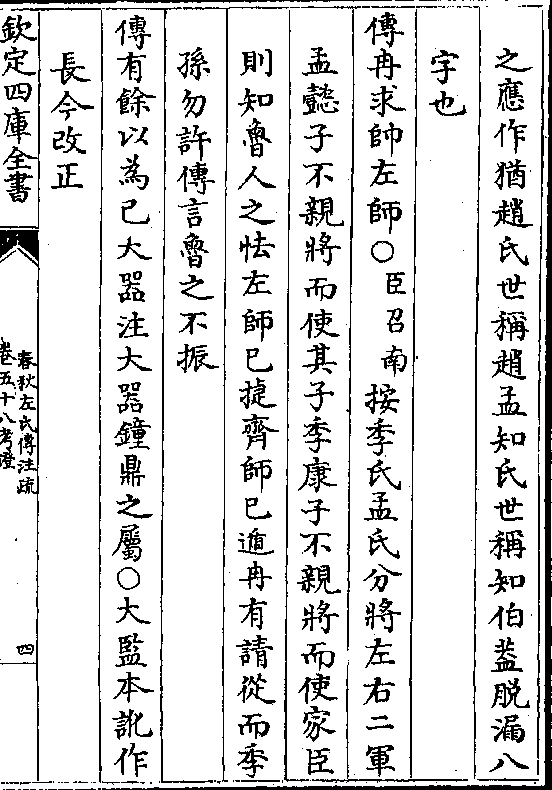 之應作猶趙氏世稱趙孟知氏世稱知伯葢脱漏八
字也
傳冉求帥左師○臣召南按季氏孟氏分將左右二軍
孟懿子不親將而使其子季康子不親將而使家臣
則知魯人之怯左師已㨗齊師已遁冉有請從而季
孫勿許傳言魯之不振
傳有餘以為已大器注大器鐘鼎之屬○大監本訛作
長今改正
欽定四庫全書
春秋左氏傳注疏
卷五十八考證
四